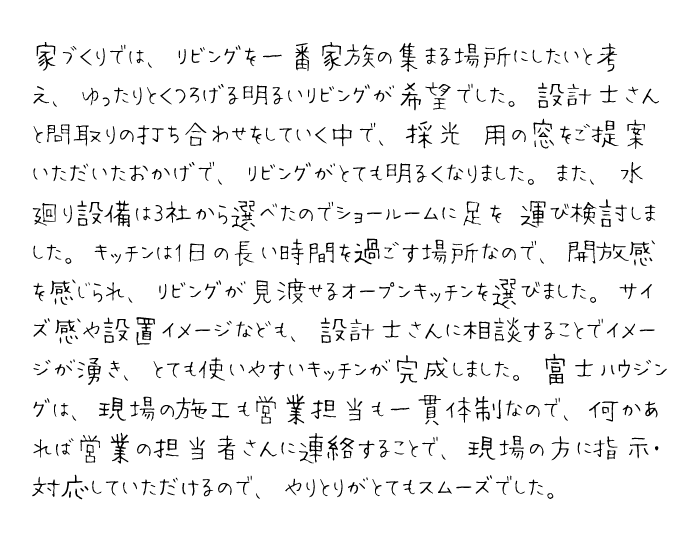 家づくりでは、リビングを一番家族の集まる場所にしたいと考
え、ゆったりとくつろげる明るいリビングが希望でした。設計士さん
と間取りの打ち合わせをしていく中で、採光用の窓をご提案
いただいたおかげで、リビングがとても明るくなりました。また、水
廻り設備は3社から選べたのでショールームに足を運び検討しま
した。キッチンは1日の長い時間を過ごす場所なので、開放感
を感じられ、リビングが見渡せるオープンキッチンを選びました。サイ
ズ感や設置イメージなども、設計士さんに相談することでイメー
ジが湧き、とても使いやすいキッチンが完成しました。富士ハウジン
グは、現場の施工も営業担当も一貫体制なので、何かあ
れば営業の担当者さんに連絡することで、現場の方に指示・
対応していただけるので、やりとりがとてもスムーズでした。